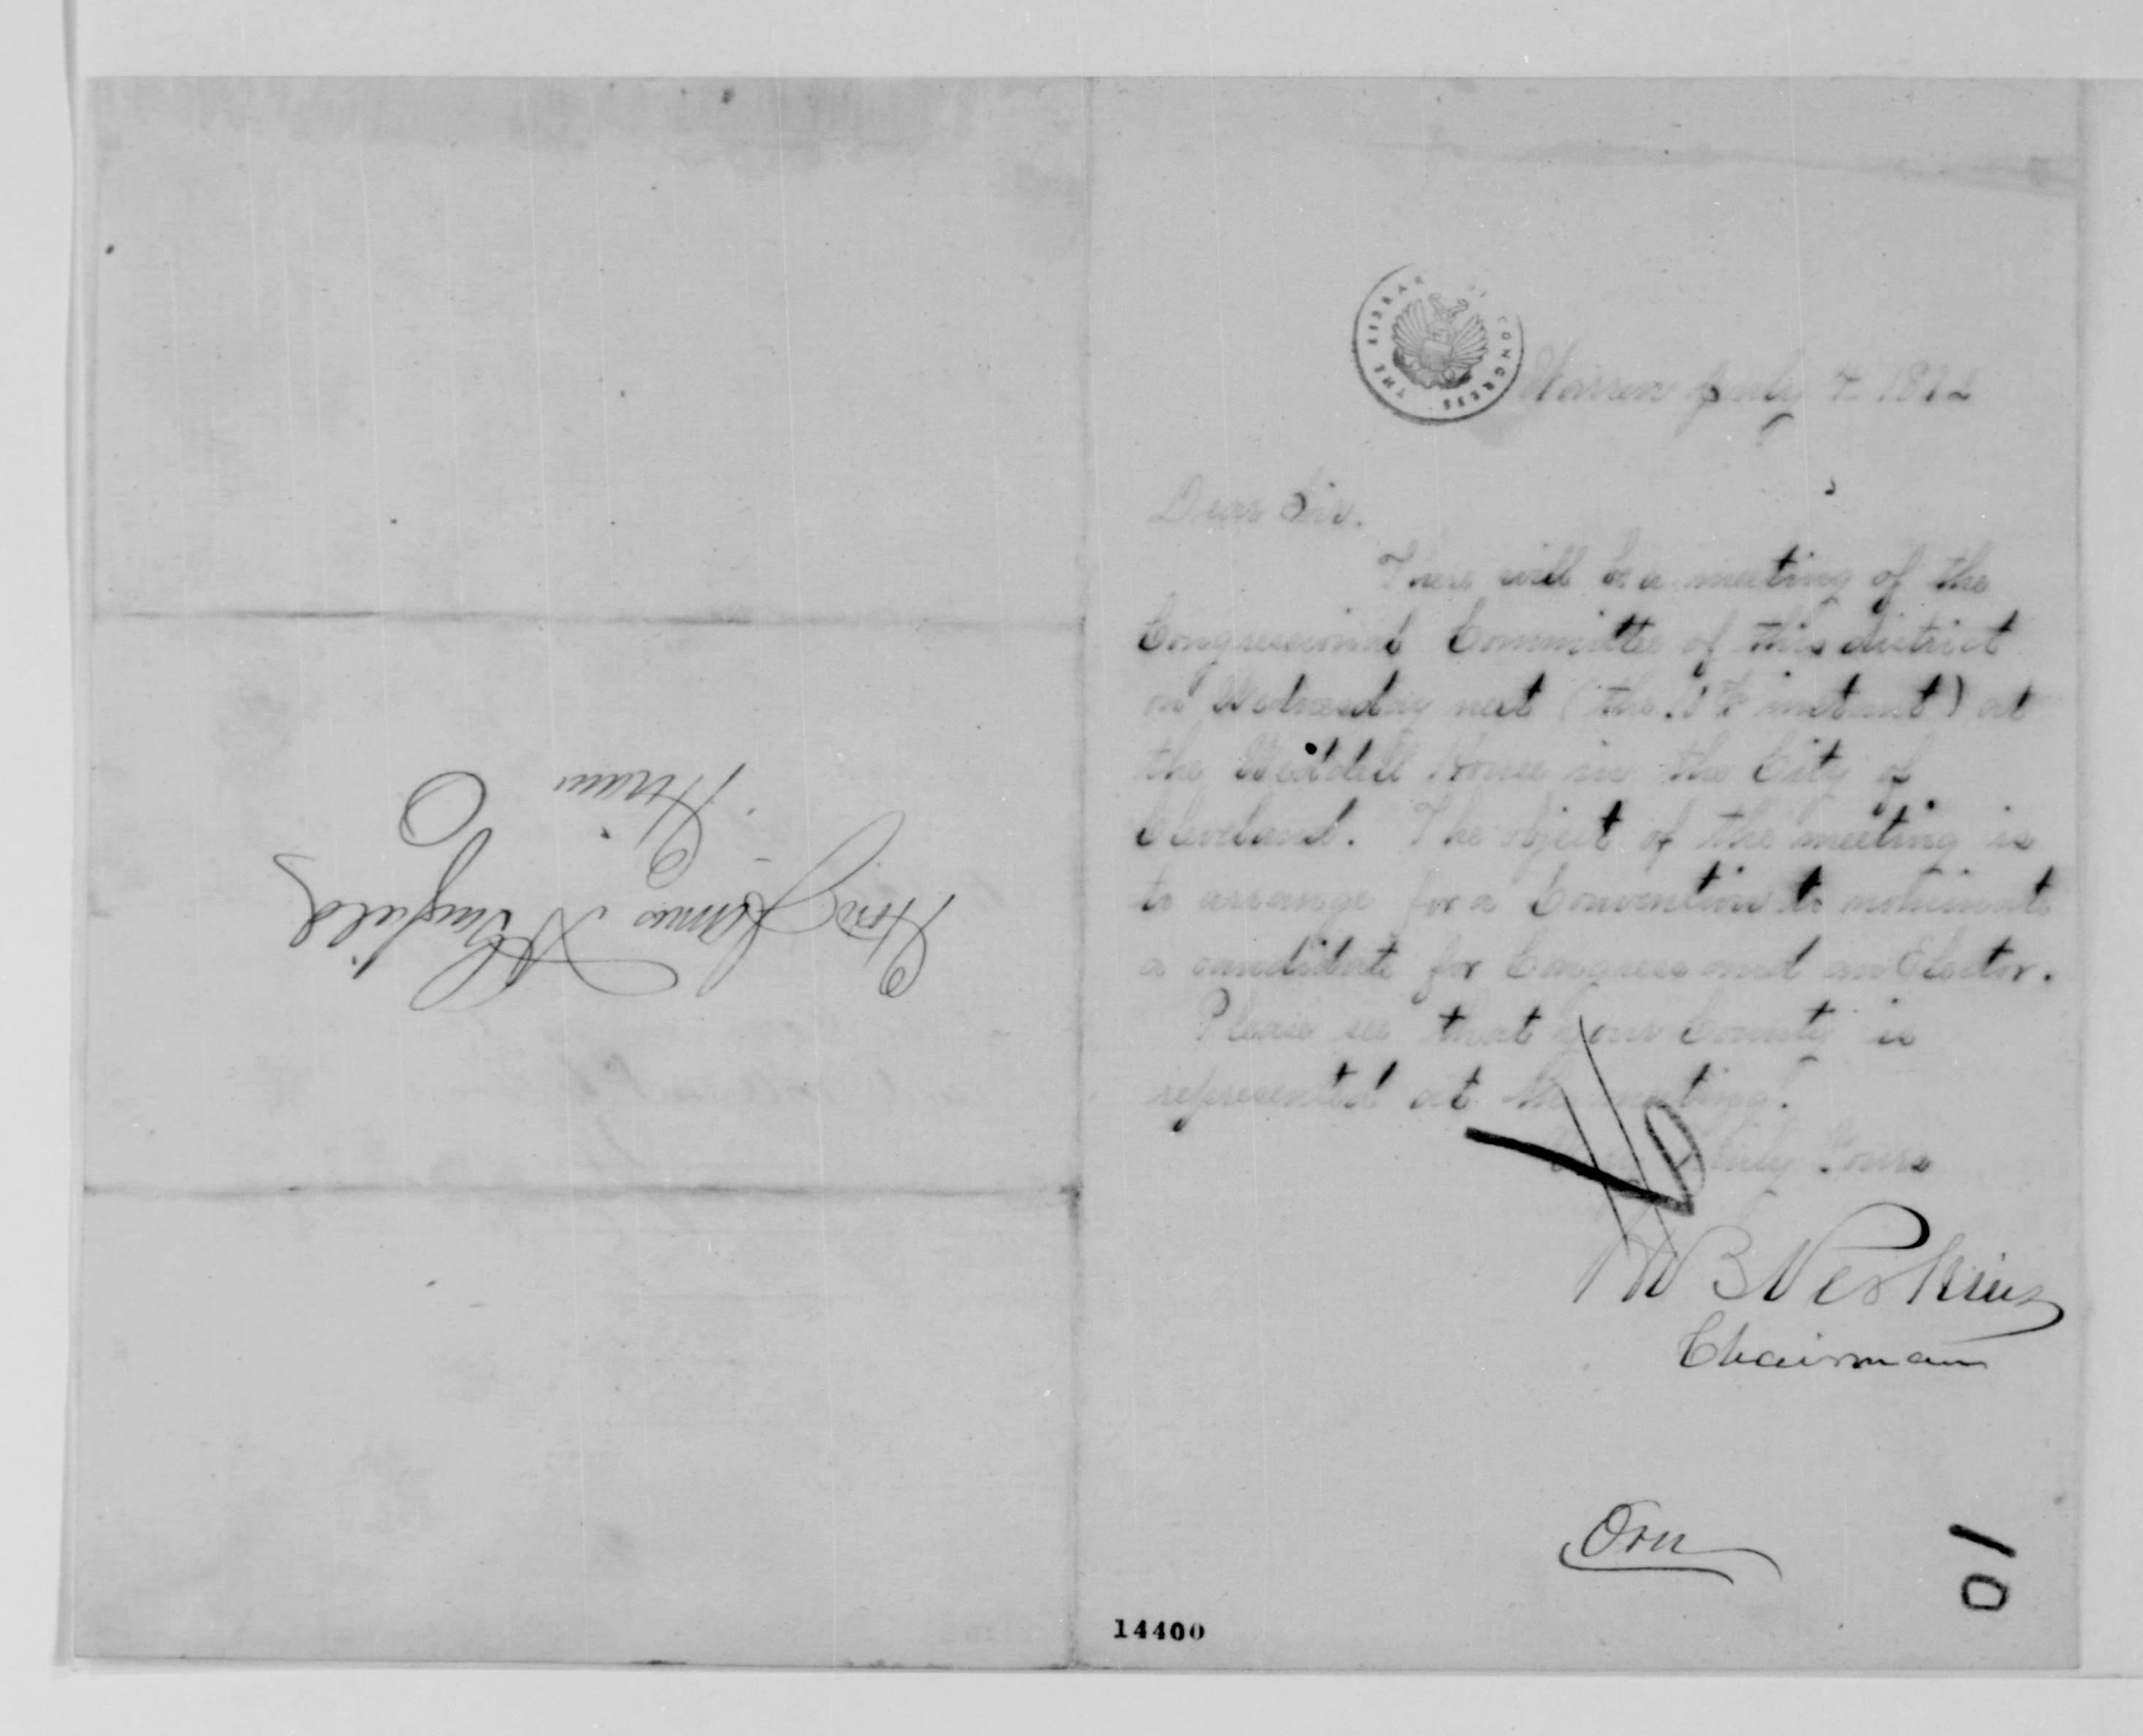 Hon James A Garfield
Hiram
O
THE LIBRARY OF CONGRESS
Warren July 4 1872
Dear Sir.
There will be a meeting of the
Congressional Committee of this district
on Wednesday next (the 10th instant) at
the Weddell House in the City of
Cleveland. The object of the meeting is
to arrange for a Convention to nominate
a candidate for Congress and an Elector.
Please see that your County is
represented at the meeting.
Truly Yours
H B Perkins
Chairman
Orn
10
14400